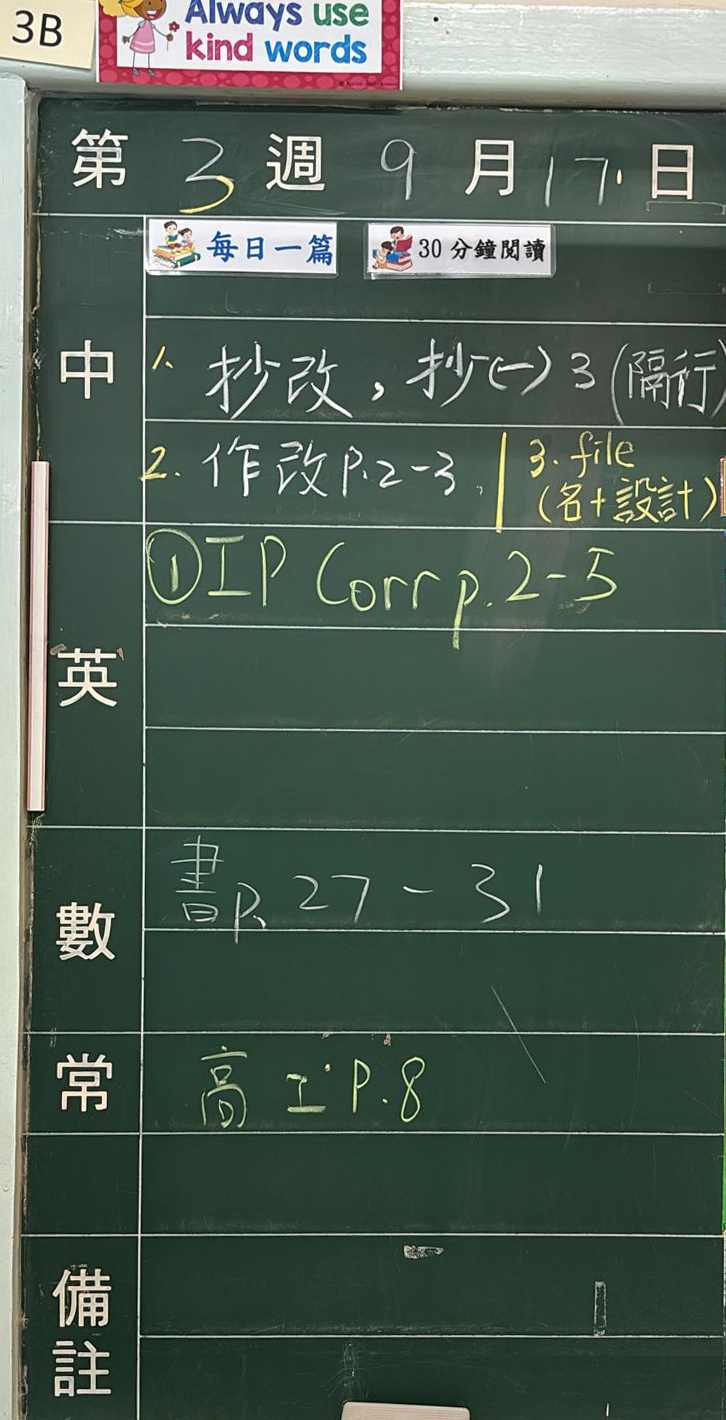 3B
Always use
kind words
第 3 週 9 月 17. 日
每日一篇 30 分鐘閱讀
中
1. 抄改，抄(一)3(隔行)
2. 作改P.2-3. 3. file
(名+設計)
英
①IP Corr p.2-5
數
書P. 27-31
常
高工P.8
備註